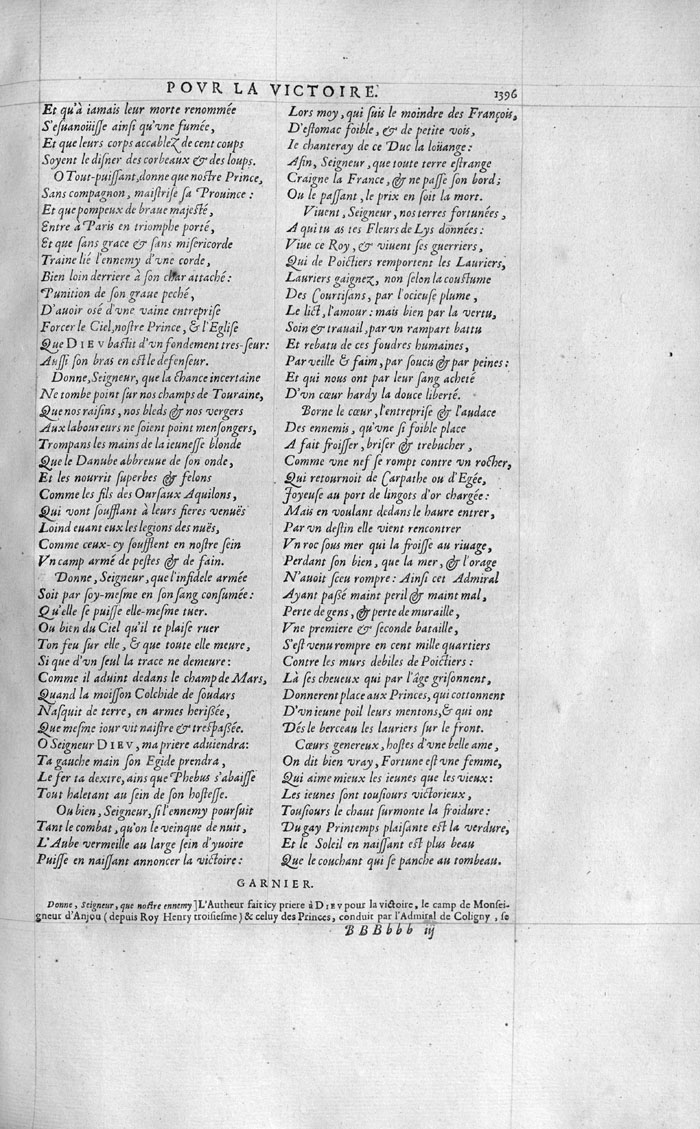 POVR LA VICTOIRE. 1396
Et qu'à iamais leur morte renommée
S'esuanoüisse ainsi qu'vne fumée,
Et que leurs corps accablez de cent coups
Soyent le disner des corbeaux & des loups.
O Tout-puissant, donne que nostre Prince,
Sans compagnon, maistrise sa Prouince:
Et que pompeux de braue majesté,
Entre à Paris en triomphe porté,
Et que sans grace & sans misericorde
Traine lié l'ennemy d'vne corde,
Bien loin derriere à son char attaché:
Punition de son graue peché,
D'auoir osé d'vne vaine entreprise
Forcer le Ciel, nostre Prince, & l'Eglise
Que DIEV bastit d'vn fondement tres-seur:
Aussi son bras en est le defenseur.
Donne, Seigneur, que la chance incertaine
Ne tombe point sur nos champs de Touraine,
Que nos raisins, nos bleds & nos vergers
Aux laboureurs ne soient point mensongers,
Trompans les mains de la ieunesse blonde
Que le Danube abbreuue de son onde,
Et les nourrit superbes & felons
Comme les fils des Oursaux Aquilons,
Qui vont soufflant à leurs fieres venuës
Loin deuant eux les legions des nuës,
Comme ceux-cy soufflent en nostre sein
Vn camp armé de pestes & de fain.
Donne, Seigneur, que l'infidele armée
Soit par soy-mesme en son sang consumée:
Qu'elle se puisse elle-mesme tuer.
Ou bien du Ciel qu'il te plaise ruer
Ton feu sur elle, & que toute elle meure,
Si que d'vn seul la trace ne demeure:
Comme il aduint dedans le champ de Mars,
Quand la moisson Colchide de soudars
Nasquit de terre, en armes herissée,
Que mesme iour vit naistre & trespassée.
O Seigneur DIEV, ma priere aduiendra:
Ta gauche main son Egide prendra,
Le fer ta dextre, ains que Phebus s'abaisse
Tout haletant au sein de son hostesse.
Ou bien, Seigneur, si l'ennemy poursuit
Tant le combat, qu'on le veinque de nuit,
L'Aube vermeille au large sein d'yuoire
Puisse en naissant annoncer la victoire:
Lors moy, qui suis le moindre des François,
D'estomac foible, & de petite vois,
Ie chanteray de ce Duc la loüange:
Afin, Seigneur, que toute terre estrange
Craigne la France, & ne passe son bord;
Ou le passant, le prix en soit la mort.
Viuent, Seigneur, nos terres fortunées,
A qui tu as tes Fleurs de Lys données:
Viue ce Roy, & viuent ses guerriers,
Qui de Poictiers remportent les Lauriers,
Lauriers gaignez, non selon la coustume
Des Courtisans, par l'ocieuse plume,
Le lict, l'amour: mais bien par la vertu,
Soin & trauail, par vn rampart battu
Et rebatu de ces foudres humaines,
Par veille & faim, par soucis & par peines:
Et qui nous ont par leur sang acheté
D'vn cœur hardy la douce liberté.
Borne le cœur, l'entreprise & l'audace
Des ennemis, qu'vne si foible place
A fait froisser, briser & trebucher,
Comme vne nef se rompt contre vn rocher,
Qui retournoit de Carpathe ou d'Egée,
Joyeuse au port de lingots d'or chargée:
Mais en voulant dedans le haure entrer,
Par vn destin elle vient rencontrer
Vn roc sous mer qui la froisse au riuage,
Perdant son bien, que la mer, & l'orage
N'auoit sceu rompre: Ainsi cet Admiral
Ayant passé maint peril & maint mal,
Perte de gens, & perte de muraille,
Vne premiere & seconde bataille,
S'est venu rompre en cent mille quartiers
Contre les murs debiles de Poictiers:
Là ses cheueux qui par l'âge grisonnent,
Donnerent place aux Princes, qui cottonnent
D'vn ieune poil leurs mentons, & qui ont
Dés le berceau les lauriers sur le front.
Cœurs genereux, hostes d'vne belle ame,
On dit bien vray, Fortune est vne femme,
Qui aime mieux les ieunes que les vieux:
Les ieunes sont tousiours victorieux,
Tousiours le chaut surmonte la froidure:
Du gay Printemps plaisante est la verdure,
Et le Soleil en naissant est plus beau
Que le couchant qui se panche au tombeau.
GARNIER.
Donne, Seigneur, que nostre ennemy] L'Autheur fait icy priere à DIEV pour la victoire, le camp de Monsei-
gneur d'Anjou (depuis Roy Henry troisiesme) & celuy des Princes, conduit par l'Admiral de Coligny, se
BBBbbb iij